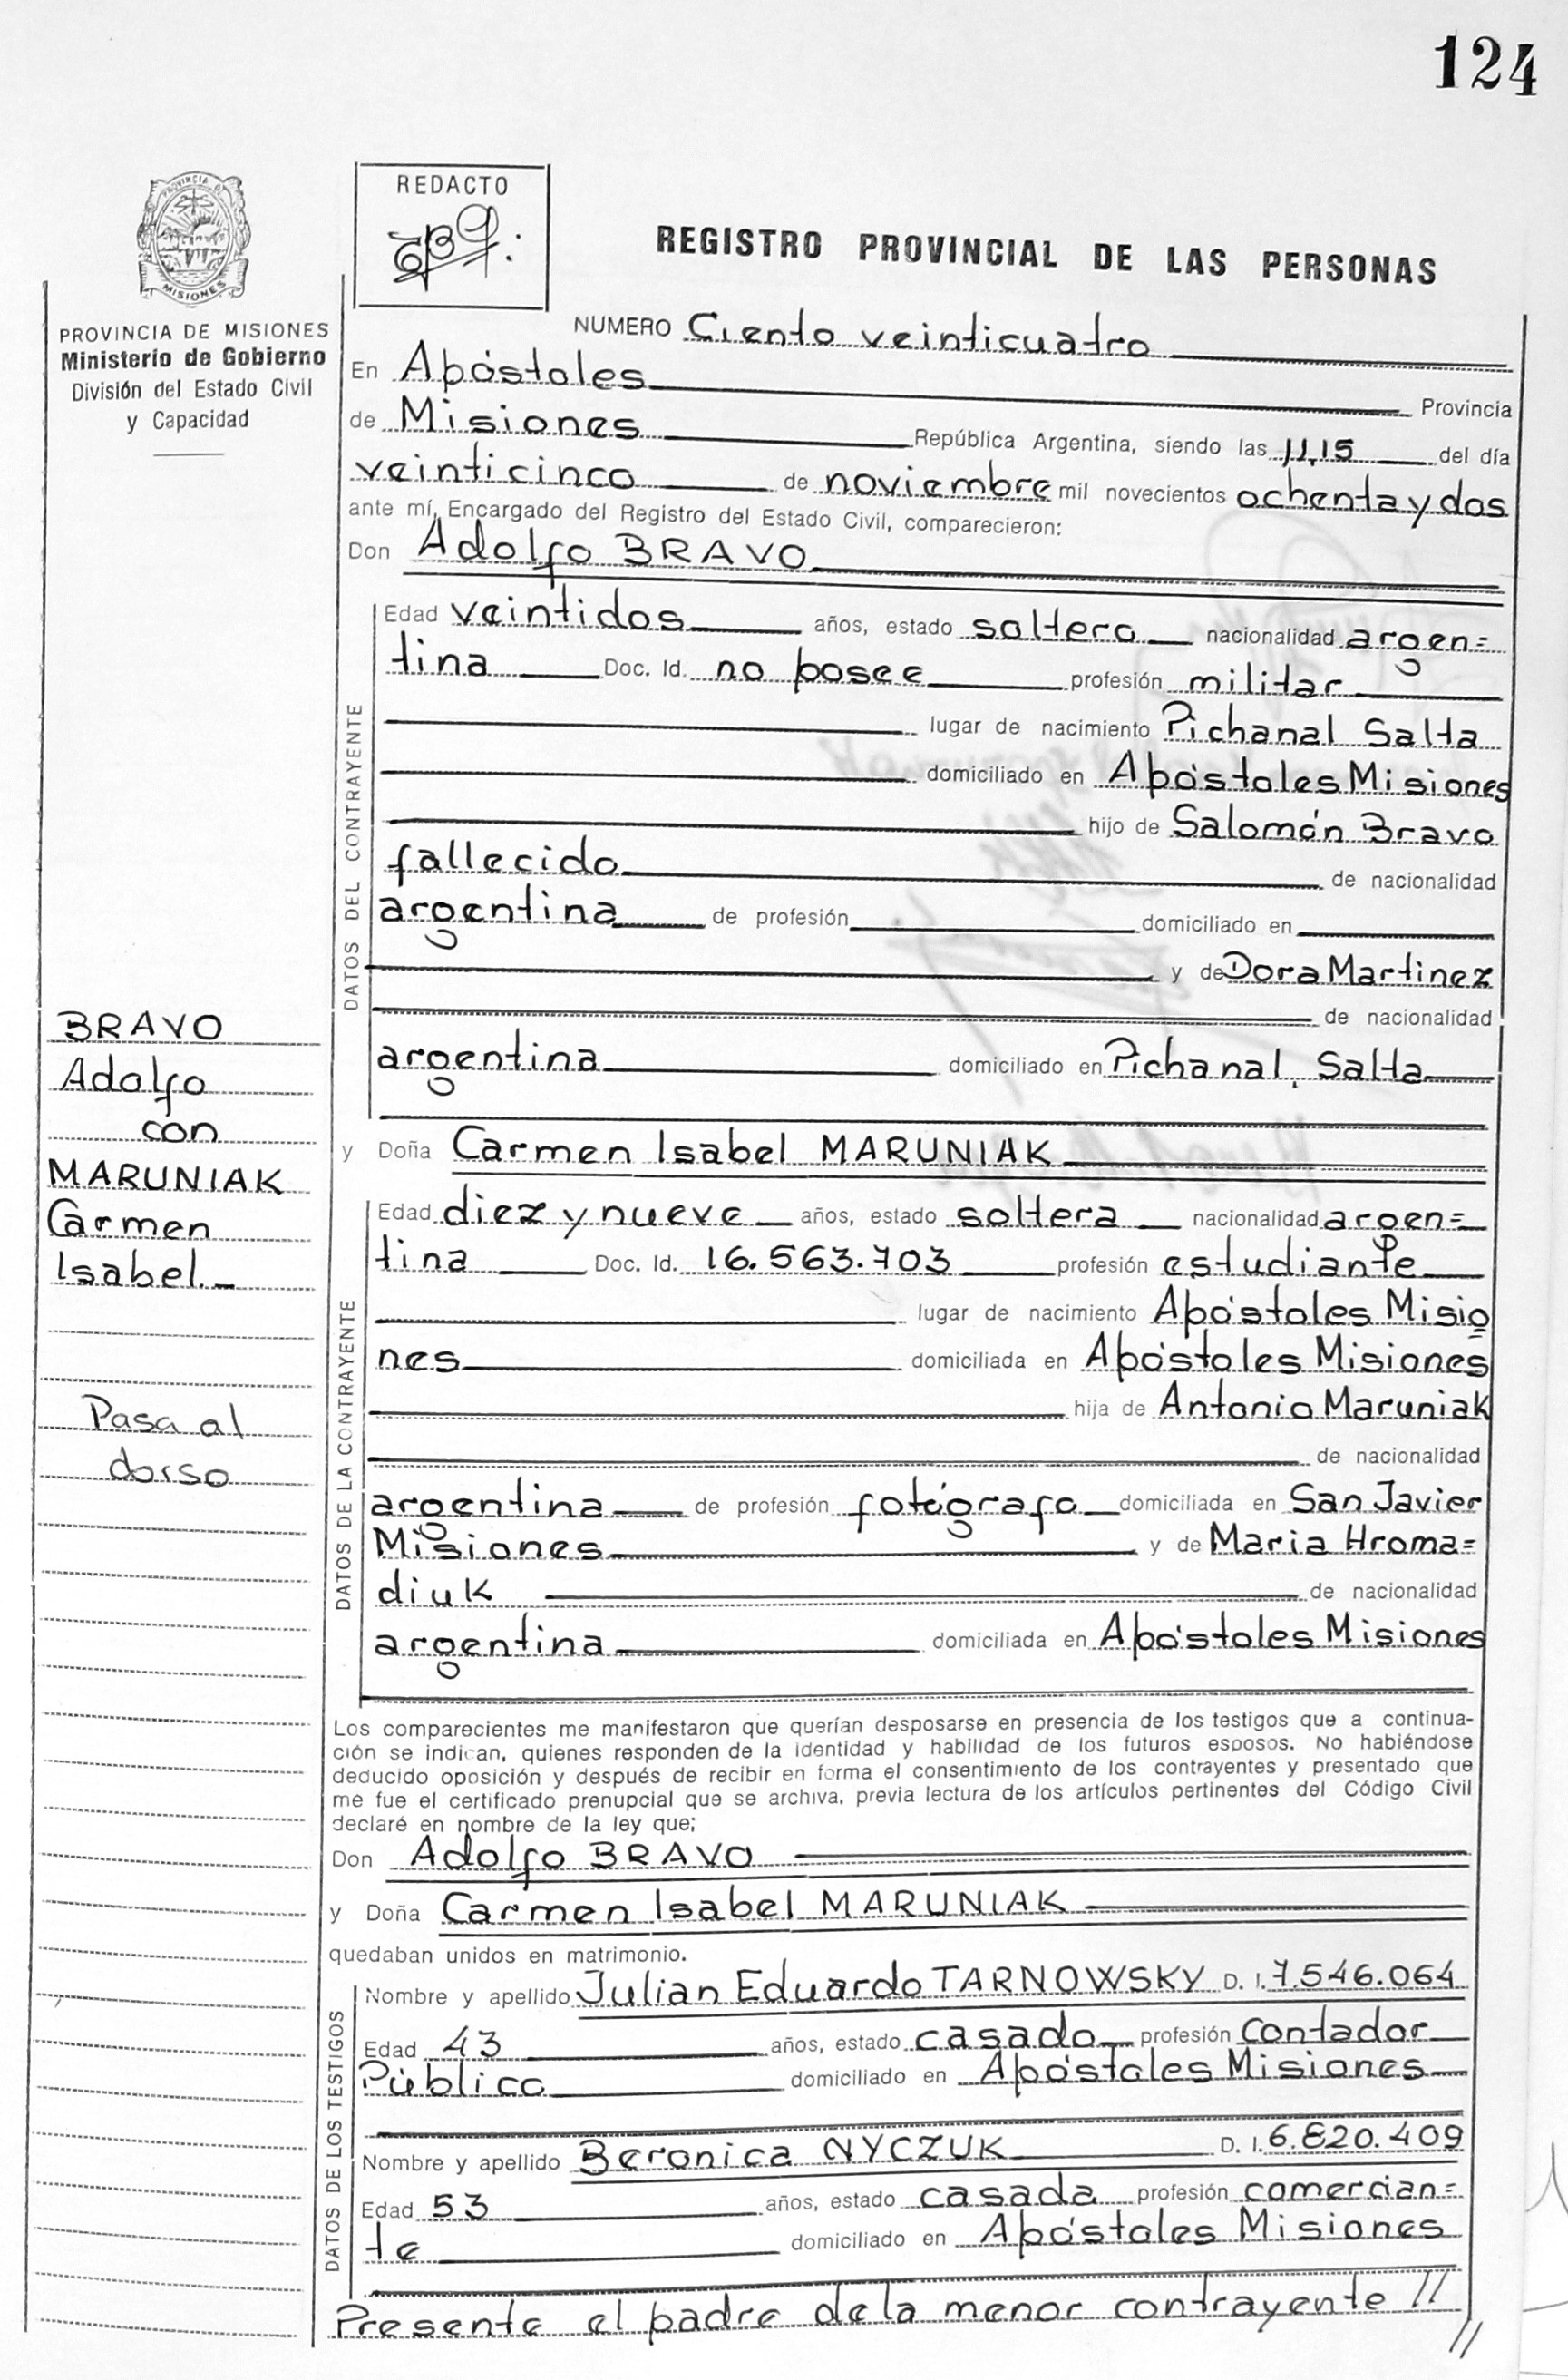 124
PROVINCIA DE
MISIONES
REDACTO
REGISTRO PROVINCIAL DE LAS PERSONAS
PROVINCIA DE MISIONES
Ministerio de Gobierno
División del Estado Civil
y Capacidad
NUMERO Ciento veinticuatro
En Apóstoles Provincia
de Misiones República Argentina, siendo las 11,15 del día
veinticinco de noviembre mil novecientos ochenta y dos
ante mí, Encargado del Registro del Estado Civil, comparecieron:
Don Adolfo BRAVO
DATOS DEL CONTRAYENTE
Edad veintidos años, estado soltero nacionalidad argen=
tina Doc. Id. no posee profesión militar
lugar de nacimiento Pichanal Salta
domiciliado en Apóstoles Misiones
hijo de Salomón Bravo
fallecido de nacionalidad
argentina de profesión domiciliado en
y de Dora Martinez
de nacionalidad
argentina domiciliado en Pichanal, Salta
BRAVO
Adolfo
con
MARUNIAK
Carmen
Isabel
Pasa al
dorso
y Doña Carmen Isabel MARUNIAK
DATOS DE LA CONTRAYENTE
Edad diez y nueve años, estado soltera nacionalidad argen=
tina Doc. Id. 16.563.703 profesión estudiante
lugar de nacimiento Apóstoles Misio
nes domiciliada en Apóstoles Misiones
hija de Antonio Maruniak
de nacionalidad
argentina de profesión fotógrafo domiciliada en San Javier
Misiones y de Maria Hroma=
diuk de nacionalidad
argentina domiciliada en Apóstoles Misiones
Los comparecientes me manifestaron que querían desposarse en presencia de los testigos que a continua-
ción se indican, quienes responden de la identidad y habilidad de los futuros esposos. No habiéndose
deducido oposición y después de recibir en forma el consentimiento de los contrayentes y presentado que
me fue el certificado prenupcial que se archiva, previa lectura de los artículos pertinentes del Código Civil
declaré en nombre de la ley que;
Don Adolfo BRAVO
y Doña Carmen Isabel MARUNIAK
quedaban unidos en matrimonio.
DATOS DE LOS TESTIGOS
Nombre y apellido Julian Eduardo TARNOWSKY D. I. 7.546.064
Edad 43 años, estado casado profesión Contador
Público domiciliado en Apóstoles Misiones
Nombre y apellido Beronica NYCZUK D. I. 6.820.409
Edad 53 años, estado casada profesión comercian=
te domiciliado en Apóstoles Misiones
Presente el padre de la menor contrayente //
//